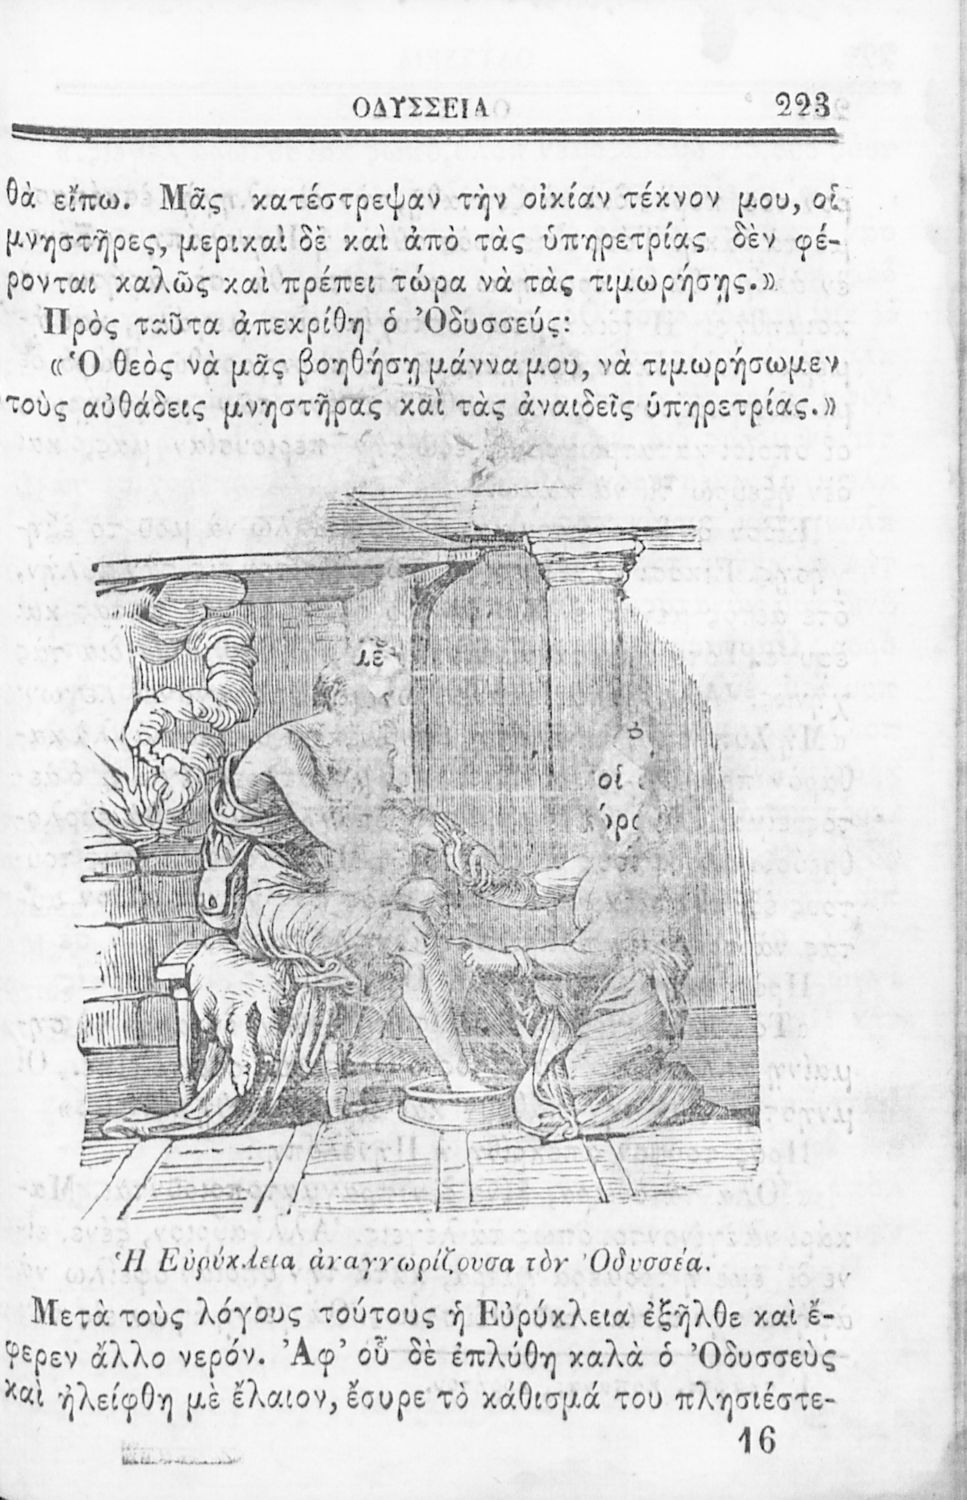 ΟΔΥΣΣΕΙΑ 223
θὰ εἴπω. Μᾶς κατέστρεψαν τὴν οἰκίαν τέκνον μου, οἱ
μνηστῆρες, μερικαὶ δὲ καὶ ἀπὸ τὰς ὑπηρετρίας δὲν φέ-
ρονται καλῶς καὶ πρέπει τώρα νὰ τὰς τιμωρήσῃς.»
Πρὸς ταῦτα ἀπεκρίθη ὁ Ὀδυσσεύς:
«Ὁ θεὸς νὰ μᾶς βοηθήσῃ μάννα μου, νὰ τιμωρήσωμεν
τοὺς αὐθάδεις μνηστῆρας καὶ τὰς ἀναιδεῖς ὑπηρετρίας.»
οἱ
Ἡ Εὐρύκλεια ἀναγνωρίζουσα τὸν Ὀδυσσέα.
Μετὰ τοὺς λόγους τούτους ἡ Εὐρύκλεια ἐξῆλθε καὶ ἔ-
φερεν ἄλλο νερόν. Ἀφ’ οὗ δὲ ἐπλύθη καλὰ ὁ Ὀδυσσεὺς
καὶ ἠλείφθη μὲ ἔλαιον, ἔσυρε τὸ κάθισμά του πλησιέστε-
16